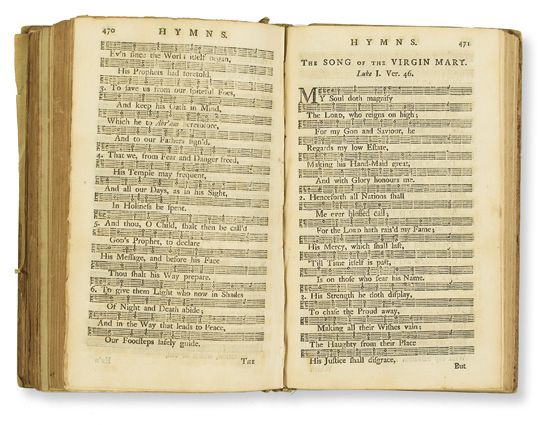 470 HYMNS.
Ev'n since the World itself began,
His Prophets had foretold,
3. To save us from our spiteful Foes,
And keep his Oath in Mind,
Which he to Abr'am heretofore,
And to our Fathers sign'd.
4. That we, from Fear and Danger freed,
His Temple may frequent,
And all our Days, as in his Sight,
In Holiness be spent.
5. And thou, O Child, shalt then be call'd
God's Prophet, to declare
His Message, and before his Face
Thou shalt his Way prepare.
6. To give them Light who now in Shades
Of Night and Death abide;
And in the Way that leads to Peace,
Our Footsteps safely guide.
THE
HYMNS. 471
THE SONG OF THE VIRGIN MARY.
Luke I. Ver. 46.
MY Soul doth magnify
The LORD, who reigns on high;
For my GOD and Saviour, he
Regards my low Estate,
Making his Hand-Maid great,
And with Glory honours me.
2. Henceforth all Nations shall
Me ever blessed call;
For the LORD hath rais'd my Fame;
His Mercy, which shall last,
'Till Time itself is past,
Is on those who fear his Name.
3. His Strength he doth display,
To chase the Proud away,
Making all their Wishes vain;
The Haughty from their Place
His Justice shall disgrace,
But